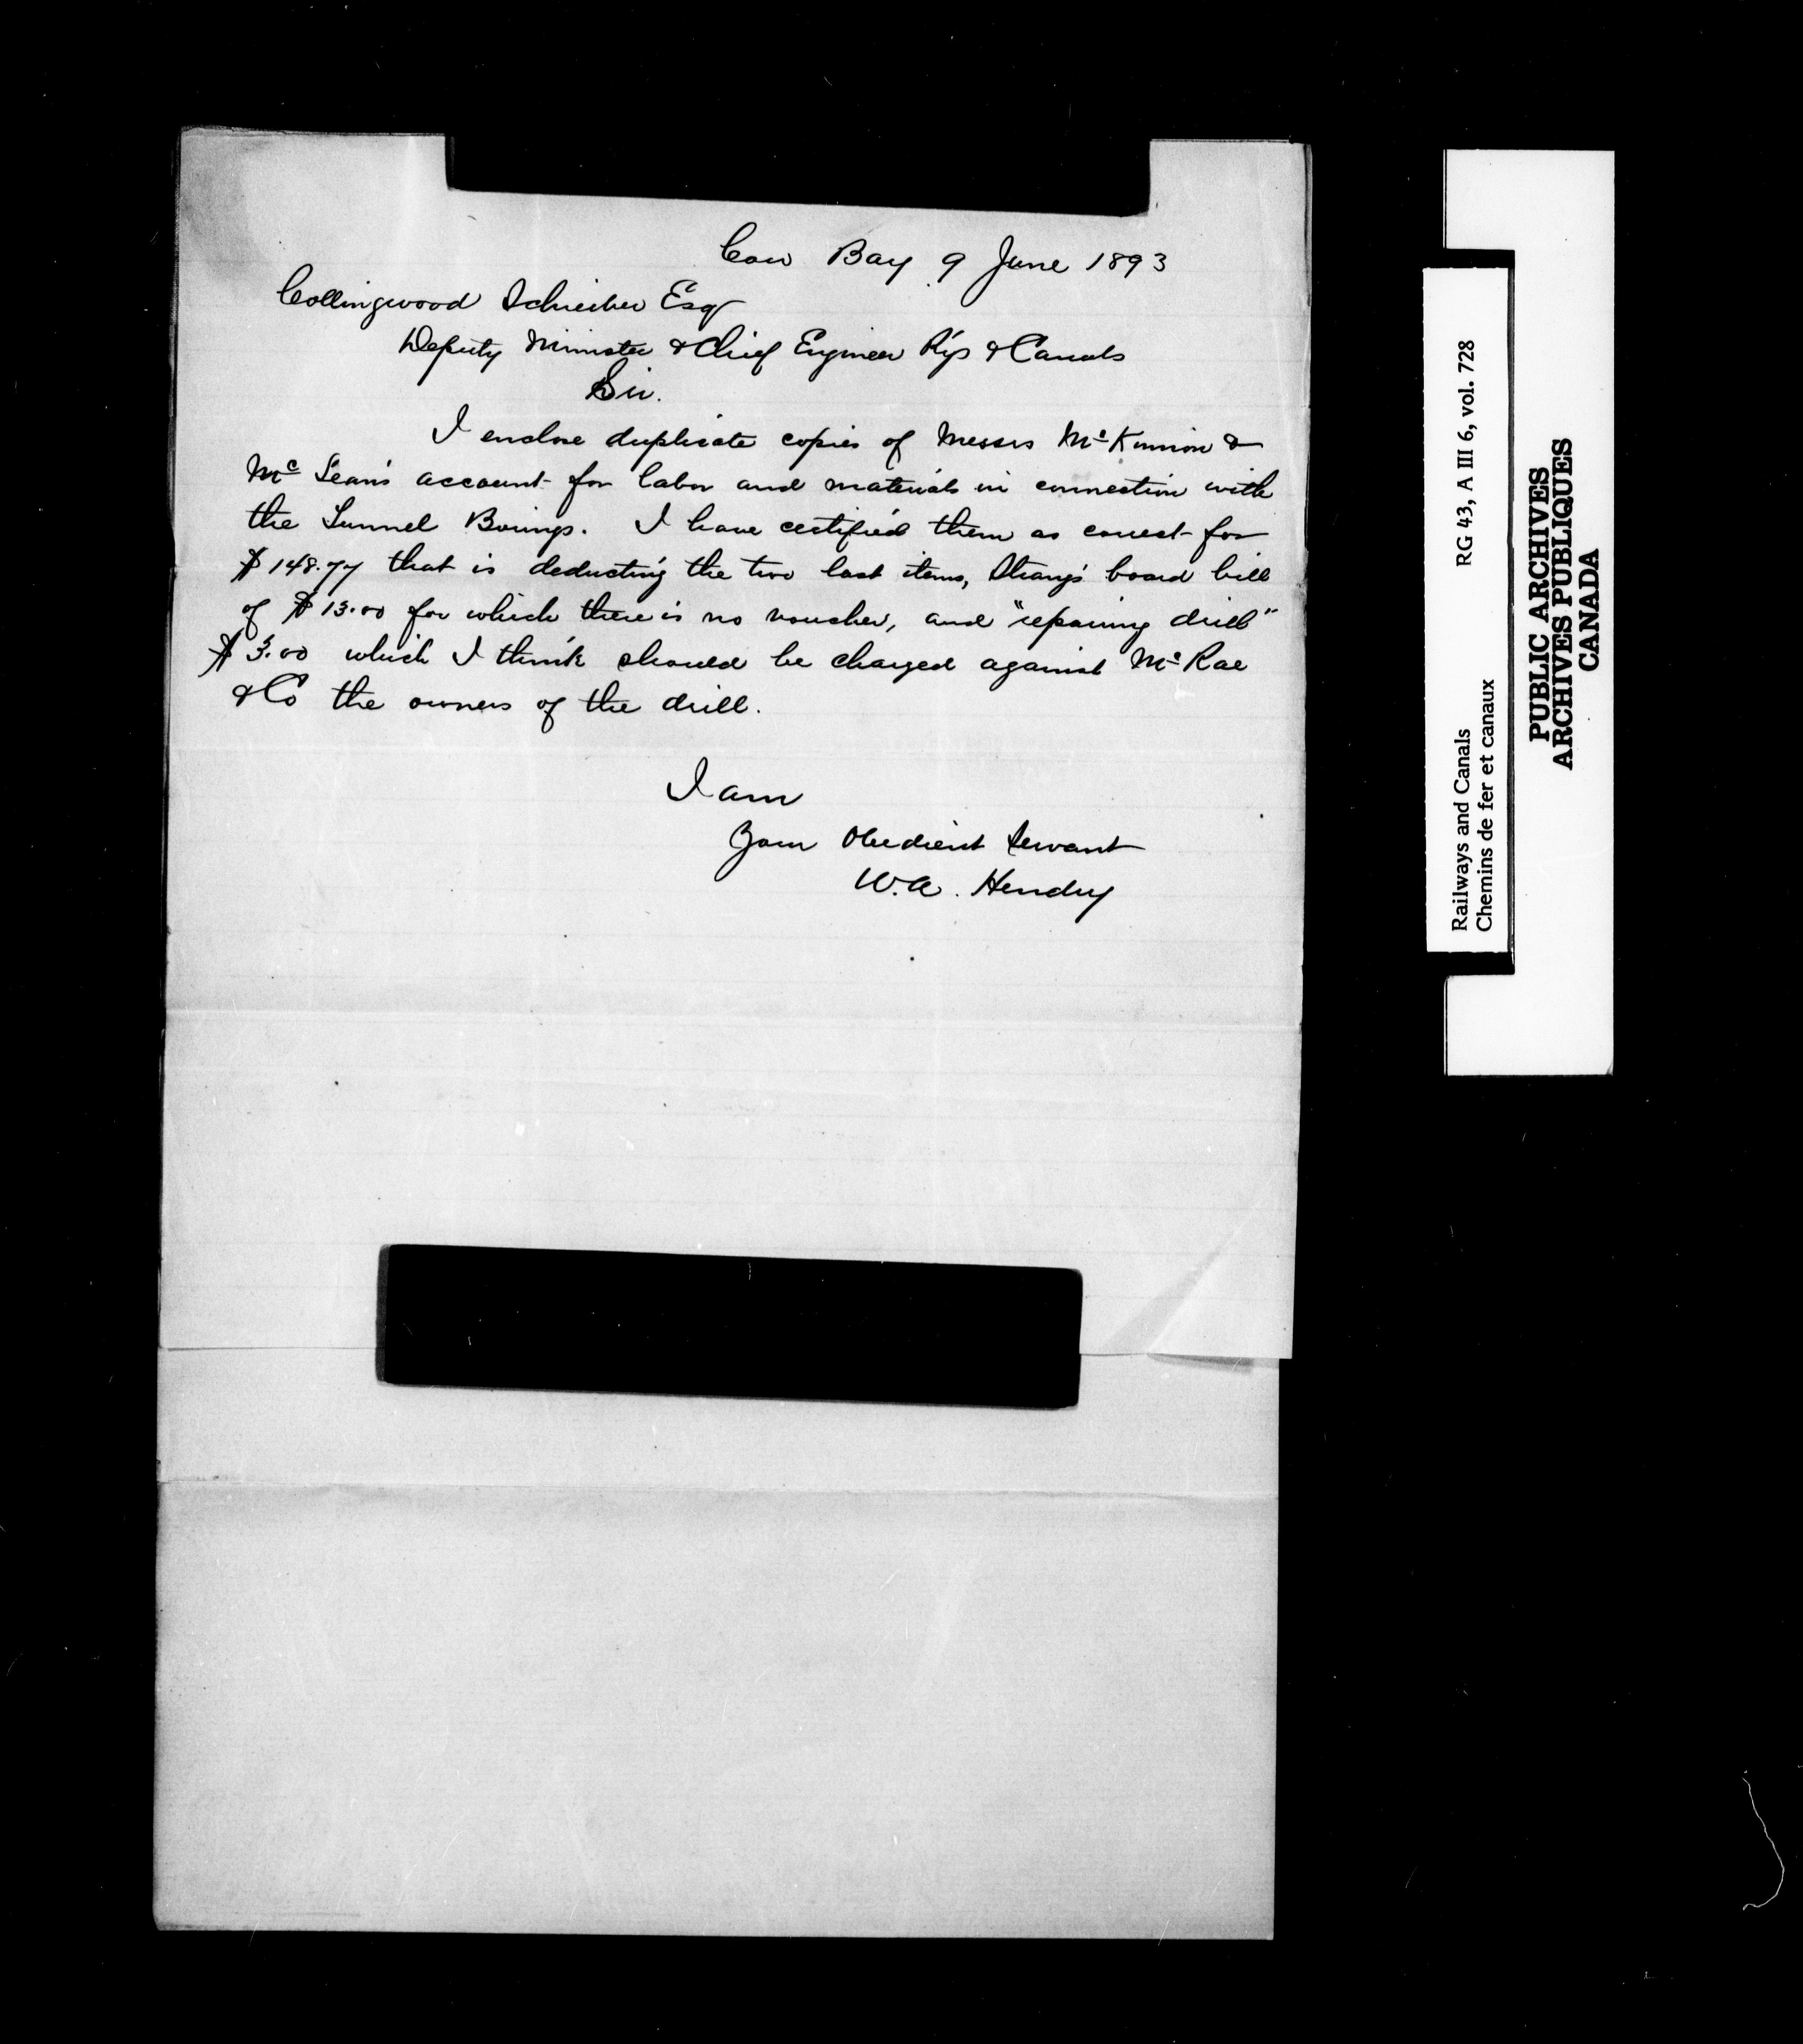 Cow Bay 9 June 1893
Collingwood Schreiber Esq
Deputy Minister & Chief Engineer Rys & Canals
Sir.
I enclose duplicate copies of Messrs McKinnon &
McLean's account for labor and materials in connection with
the Tunnel Borings. I have certified them as correct for
$148.77 that is deducting the two last items, Strang's board bill
of $13.00 for which there is no voucher, and "repairing drill"
$3.00 which I think should be charged against McRae
& Co the owners of the drill.
I am
Your Obedient Servant
W.A. Hendry
Railways and Canals RG 43, A III 6, vol. 728
Chemins de fer et canaux
PUBLIC ARCHIVES
ARCHIVES PUBLIQUES
CANADA